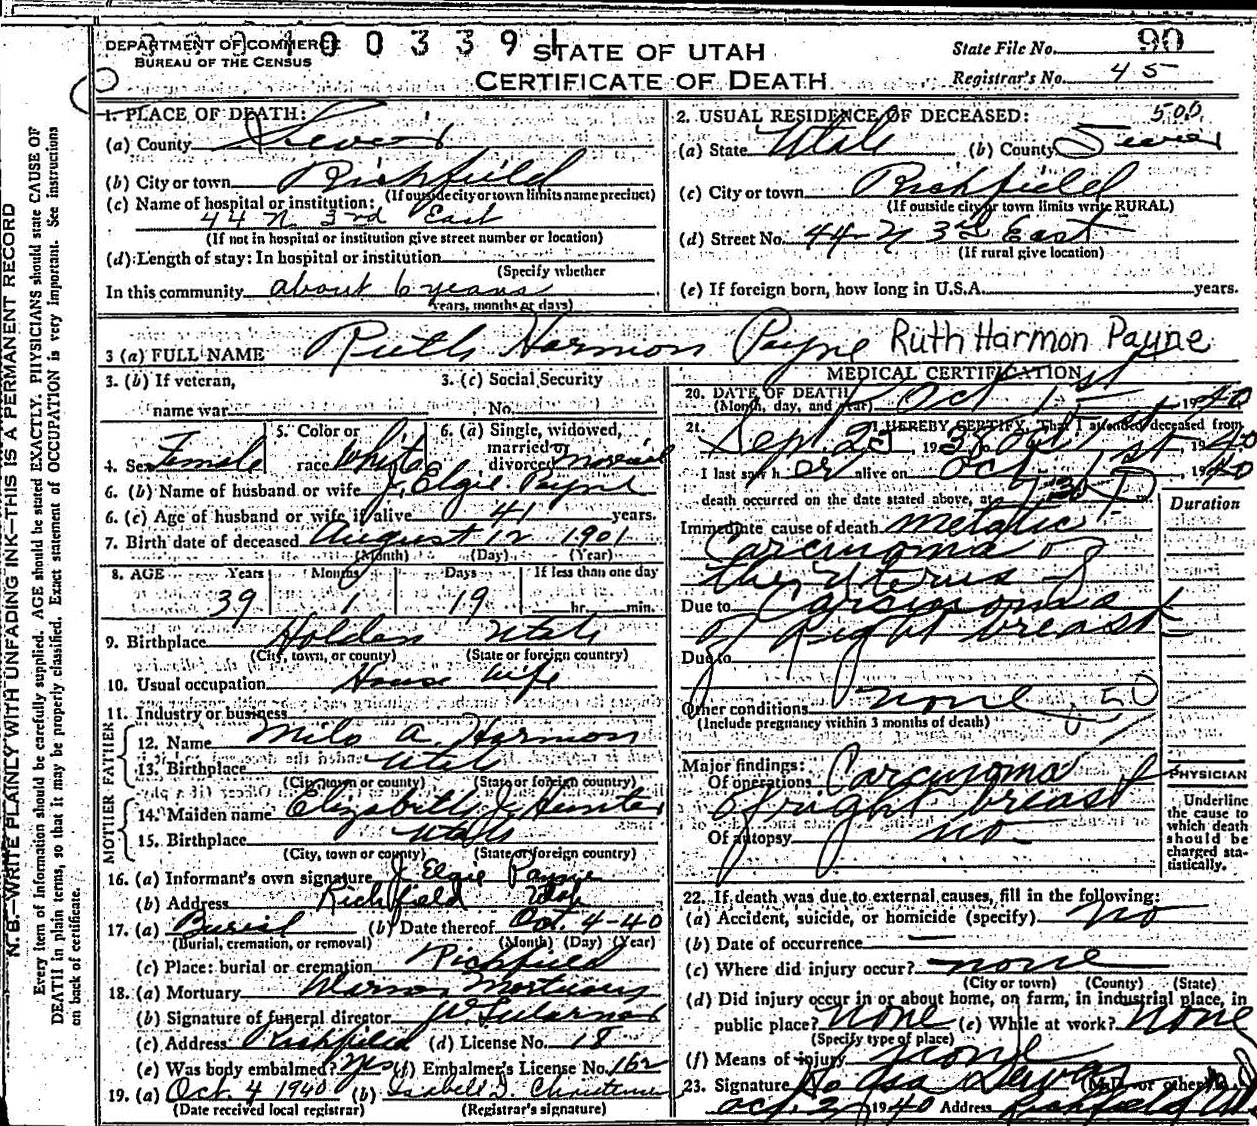 DEPARTMENT OF COMMERCE
BUREAU OF THE CENSUS
0 0 3 3 9 1
STATE OF UTAH
CERTIFICATE OF DEATH
State File No. 90
Registrar's No. 45
1. PLACE OF DEATH:
(a) County Sevier
(b) City or town Richfield
(If outside city or town limits name precinct)
(c) Name of hospital or institution:
44 N. 3rd East
(If not in hospital or institution give street number or location)
(d) Length of stay: In hospital or institution
(Specify whether
In this community about 6 years
years, months or days)
2. USUAL RESIDENCE OF DECEASED: 500
(a) State Utah (b) County Sevier
(c) City or town Richfield
(If outside city or town limits write RURAL)
(d) Street No. 44-N 3rd East
(If rural give location)
(e) If foreign born, how long in U.S.A. years.
3 (a) FULL NAME Ruth Harmon Payne Ruth Harmon Payne
3. (b) If veteran,
name war
3. (c) Social Security
No.
4. Sex Female
5. Color or
race White
6. (a) Single, widowed,
married or
divorced married
6. (b) Name of husband or wife J. Elgie Payne
6. (c) Age of husband or wife if alive 41 years.
7. Birth date of deceased August 12 1901
(Month) (Day) (Year)
8. AGE Years Months Days If less than one day
39 1 19 hr. min.
9. Birthplace Holden Utah
(City, town, or county) (State or foreign country)
10. Usual occupation House wife
11. Industry or business
FATHER
12. Name Milo A. Harmon
13. Birthplace Utah
(City, town or county) (State or foreign country)
MOTHER
14. Maiden name Elizabeth J. Hunter
15. Birthplace Utah
(City, town or county) (State or foreign country)
16. (a) Informant's own signature J Elgie Payne
(b) Address Richfield Utah
17. (a) Burial (b) Date thereof Oct. 4-40
(Burial, cremation, or removal) (Month) (Day) (Year)
(c) Place: burial or cremation Richfield
18. (a) Mortuary Mortuary
(b) Signature of funeral director
(c) Address Richfield (d) License No. 18
(e) Was body embalmed? Yes (f) Embalmer's License No. 162
19. (a) Oct. 4 1940 (b)
(Date received local registrar) (Registrar's signature)
MEDICAL CERTIFICATION
20. DATE OF DEATH
(Month, day, and year) Oct 1st, 1940
21. I HEREBY CERTIFY, That I attended deceased from
Sept. 25, 1938 to Oct 1st, 1940
I last saw her alive on Oct 1st, 1940
death occurred on the date stated above, at 7:30 P m.
Duration
Immediate cause of death metatic
Carcinoma of
the Uterus
Due to Carsinoma
of Right breast
Due to
Other conditions none 50
(Include pregnancy within 3 months of death)
Major findings:
Of operations Carcinoma
of right breast
Of autopsy no
PHYSICIAN
Underline
the cause to
which death
should be
charged sta-
tistically.
22. If death was due to external causes, fill in the following:
(a) Accident, suicide, or homicide (specify) no
(b) Date of occurrence —
(c) Where did injury occur? none
(City or town) (County) (State)
(d) Did injury occur in or about home, on farm, in industrial place, in
public place? none (e) While at work? none
(Specify type of place)
(f) Means of injury none
23. Signature Asa Dewey (M.D. or other) M.D.
Oct. 2 1940 Address Richfield
N. B.—WRITE PLAINLY WITH UNFADING INK—THIS IS A PERMANENT RECORD
Every item of information should be carefully supplied. AGE should be stated EXACTLY. PHYSICIANS should state CAUSE OF
DEATH in plain terms, so that it may be properly classified. Exact statement of OCCUPATION is very important. See instructions
on back of certificate.